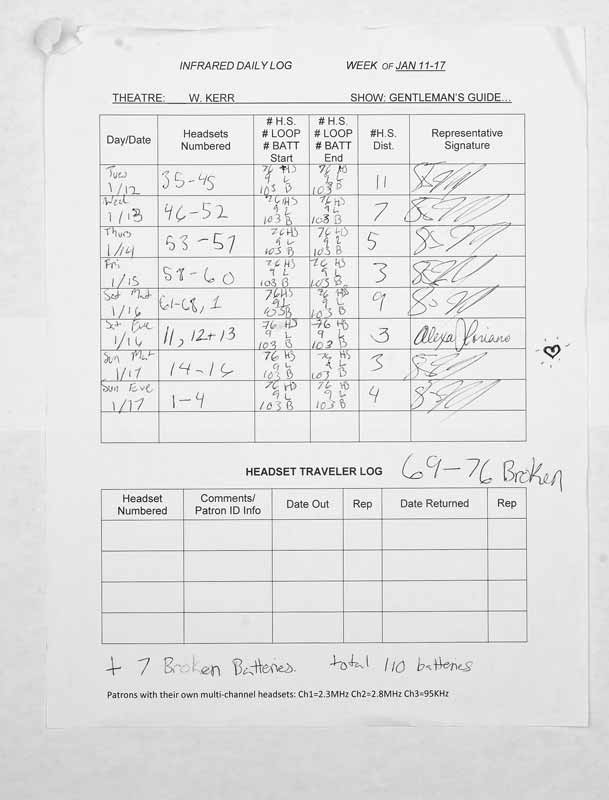 INFRARED DAILY LOG WEEK OF JAN 11-17
THEATRE: W. KERR SHOW: GENTLEMAN'S GUIDE...
Day/Date Headsets Numbered # H.S. # LOOP # BATT Start # H.S. # LOOP # BATT End #H.S. Dist. Representative Signature
Tues 1/12 35-45 76 HS 9 L 103 B 76 HS 9 L 103 B 11
Wed 1/13 46-52 76 HS 9 L 103 B 76 HS 9 L 103 B 7
Thurs 1/14 53-57 76 HS 9 L 103 B 76 HS 9 L 103 B 5
Fri 1/15 58-60 76 HS 9 L 103 B 76 HS 9 L 103 B 3
Sat Mat 1/16 61-68, 1 76 HS 9 L 103 B 76 HS 9 L 103 B 9
Sat Eve 1/16 11, 12+13 76 HS 9 L 103 B 76 HS 9 L 103 B 3 Alexa
Sun Mat 1/17 14-16 76 HS 9 L 103 B 76 HS 9 L 103 B 3
Sun Eve 1/17 1-4 76 HS 9 L 103 B 76 HS 9 L 103 B 4
HEADSET TRAVELER LOG 69-76 Broken
Headset Numbered Comments/ Patron ID Info Date Out Rep Date Returned Rep
+ 7 Broken Batteries. total 110 batteries
Patrons with their own multi-channel headsets: Ch1=2.3MHz Ch2=2.8MHz Ch3=95KHz